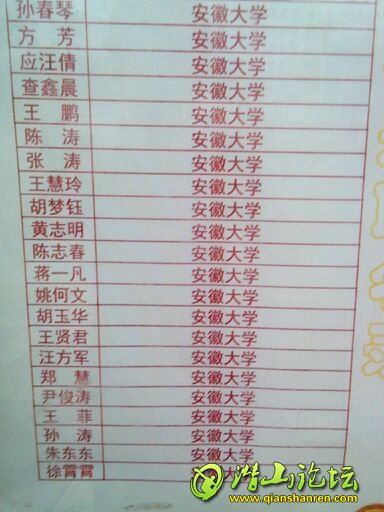 孙春琴 安徽大学
方 芳 安徽大学
应汪倩 安徽大学
查鑫晨 安徽大学
王 鹏 安徽大学
陈 涛 安徽大学
张 涛 安徽大学
王慧玲 安徽大学
胡梦钰 安徽大学
黄志明 安徽大学
陈志春 安徽大学
蒋一凡 安徽大学
姚何文 安徽大学
胡玉华 安徽大学
王贤君 安徽大学
汪方军 安徽大学
郑 慧 安徽大学
尹俊涛 安徽大学
王 菲 安徽大学
孙 涛 安徽大学
朱东东 安徽大学
徐霄霄 安徽大学
潜山论坛
www.qianshanren.com